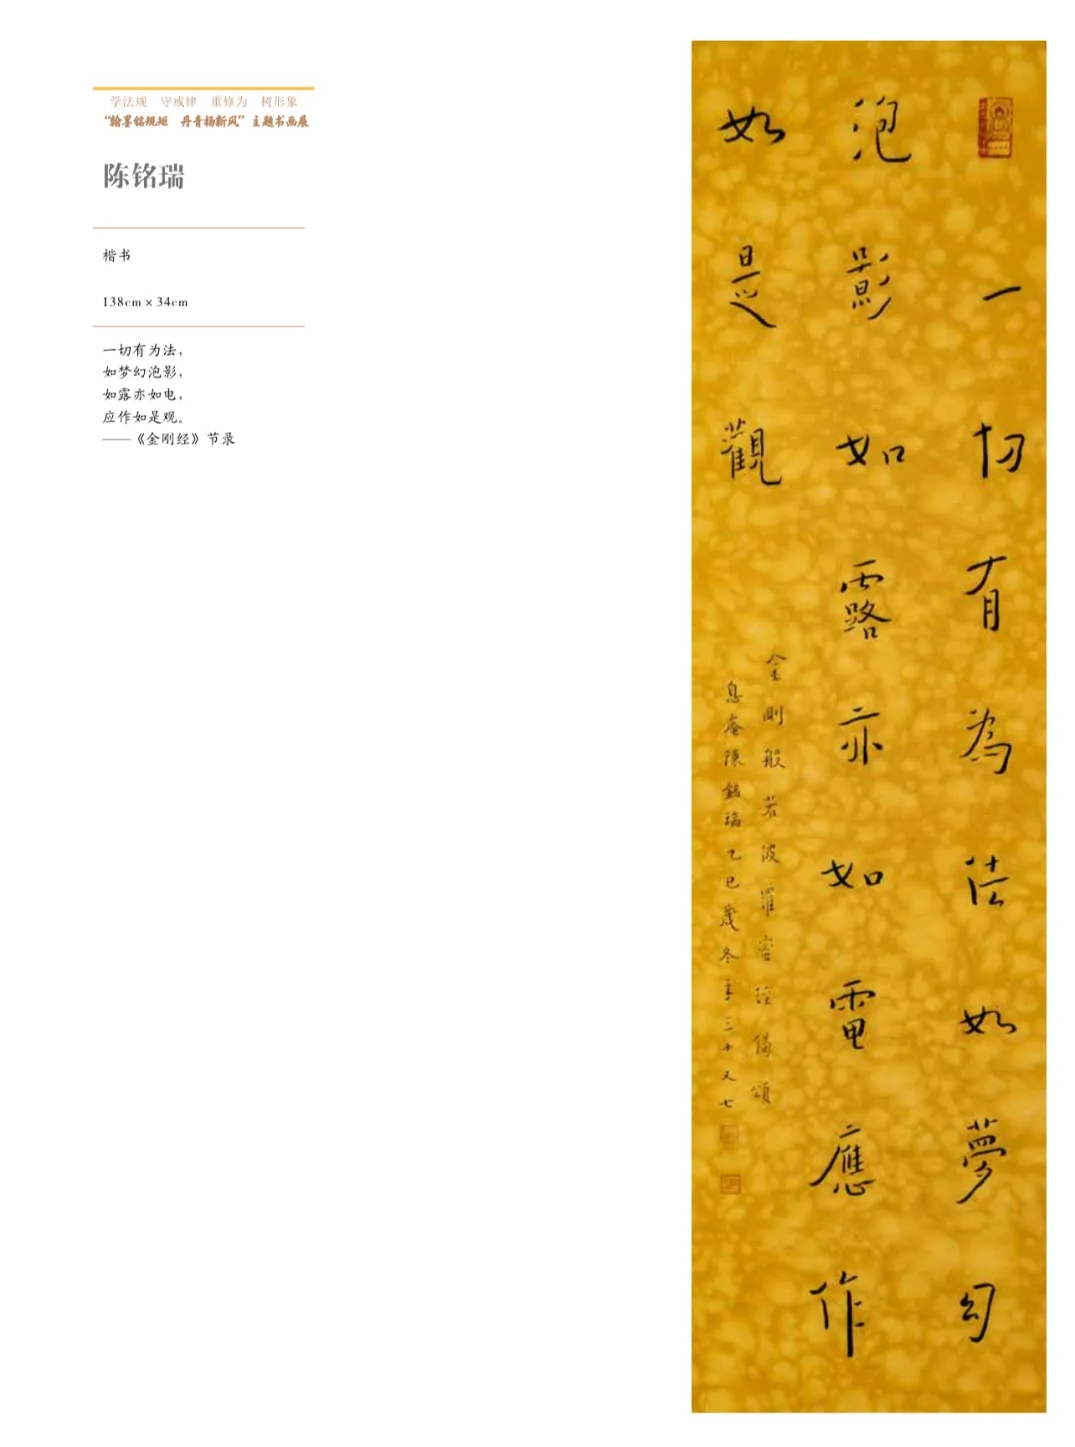 学法规 守戒律 重修为 树形象
“翰墨铭规矩 丹青扬新风”主题书画展
陈铭瑞
楷书
138cm × 34cm
一切有为法，
如梦幻泡影，
如露亦如电，
应作如是观。
——《金刚经》节录
一切有為法如夢幻
泡影如露亦如電應作
如是觀
金剛般若波羅密經偈頌
息庵陳銘瑞乙巳歲冬年三十又七